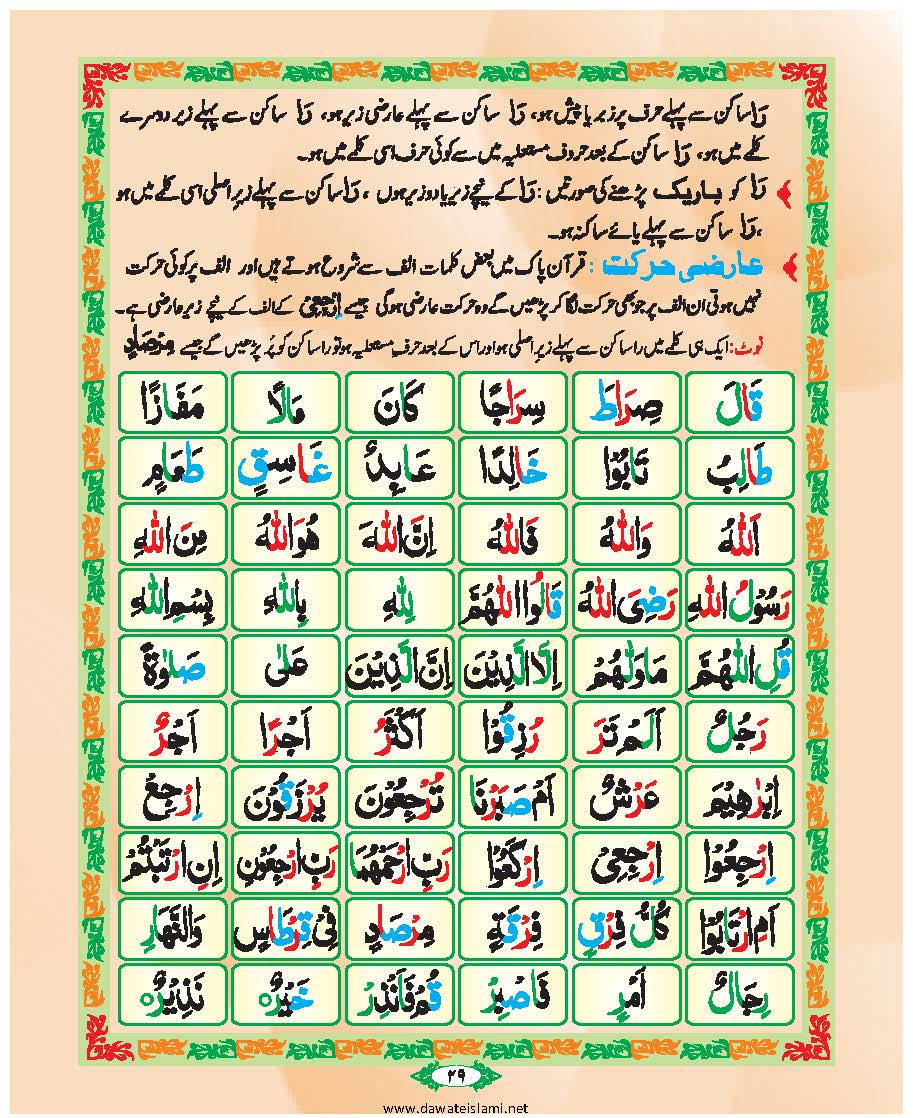 رَا ساکن سے پہلے حرف پر زبر یا پیش ہو، رَا ساکن سے پہلے عارضی زیر ہو، رَا ساکن سے پہلے زیر دوسرے
کلمے میں ہو، رَا ساکن کے بعد حروف مستعلیہ میں سے کوئی حرف اسی کلمے میں ہو۔
رَا کو باریک پڑھنے کی صورتیں: رَا کے نیچے زیر یا دو زیر ہوں ، رَا ساکن سے پہلے زیرِ اصلی اسی کلمے میں ہو
، رَا ساکن سے پہلے یائے ساکنہ ہو۔
عارضی حرکت : قرآن پاک میں بعض کلمات الف سے شروع ہوتے ہیں اور الف پر کوئی حرکت
نہیں ہوتی ان الف پر جو بھی حرکت لگا کر پڑھیں گے وہ حرکت عارضی ہوگی جیسے اِرْجِعِیْ کے الف کے نیچے زیر عارضی ہے۔
نوٹ: ایک ہی کلمے میں را ساکن سے پہلے زیرِ اصلی ہو اور اس کے بعد حرف مستعلیہ ہو تو را ساکن کو پُر پڑھیں گے جیسے مِرْصَادٍ
قَالَ صِرَاطَ سِرَاجًا كَانَ مَالًا مَفَازًا
طَالِبُ تَابُوْا خَالِدًا عَابِدٌ غَاسِقٍ طَعَامٍ
اَللّٰهُ وَاللّٰهُ فَاللّٰهُ اِنَّ اللّٰهَ هُوَ اللّٰهُ مِنَ اللّٰهِ
رَسُوْلُ اللّٰهِ رَضِیَ اللّٰهُ قَالُوا اللّٰهُمَّ لِلّٰهِ بِاللّٰهِ بِسْمِ اللّٰهِ
قُلِ اللّٰهُمَّ مَاوَلّٰهُمْ اِلَّا الَّذِيْنَ اِنَّ الَّذِيْنَ عَلٰى صَلٰوةً
رَجُلٌ اَلَمْ تَرَ رُزِقُوْا اَكْثَرُ اَجْرًا اَجْرٌ
اِبْرٰهِيْمَ عَرْشٌ اَمْ صَبَرْنَا تُرْجَعُوْنَ يُرْزَقُوْنَ اِرْجِعْ
اِرْجِعُوْا اِرْجِعِیْ اِرْكَعُوْا رَبِّ ارْحَمْهُمَا رَبِّ ارْجِعُوْنِ اِنِ ارْتَبْتُمْ
اَمِ ارْتَابُوْا كُلُّ فِرْقٍ فِرْقَةٍ مِرْصَادٍ فِیْ قِرْطَاسٍ وَالنَّهَارِ
رِجَالٌ اَمْرٍ فَاصْبِرْ قُمْ فَاَنْذِرْ خَيْرٌ○ نَذِيْرٌ○
۲۹
www.dawateislami.net